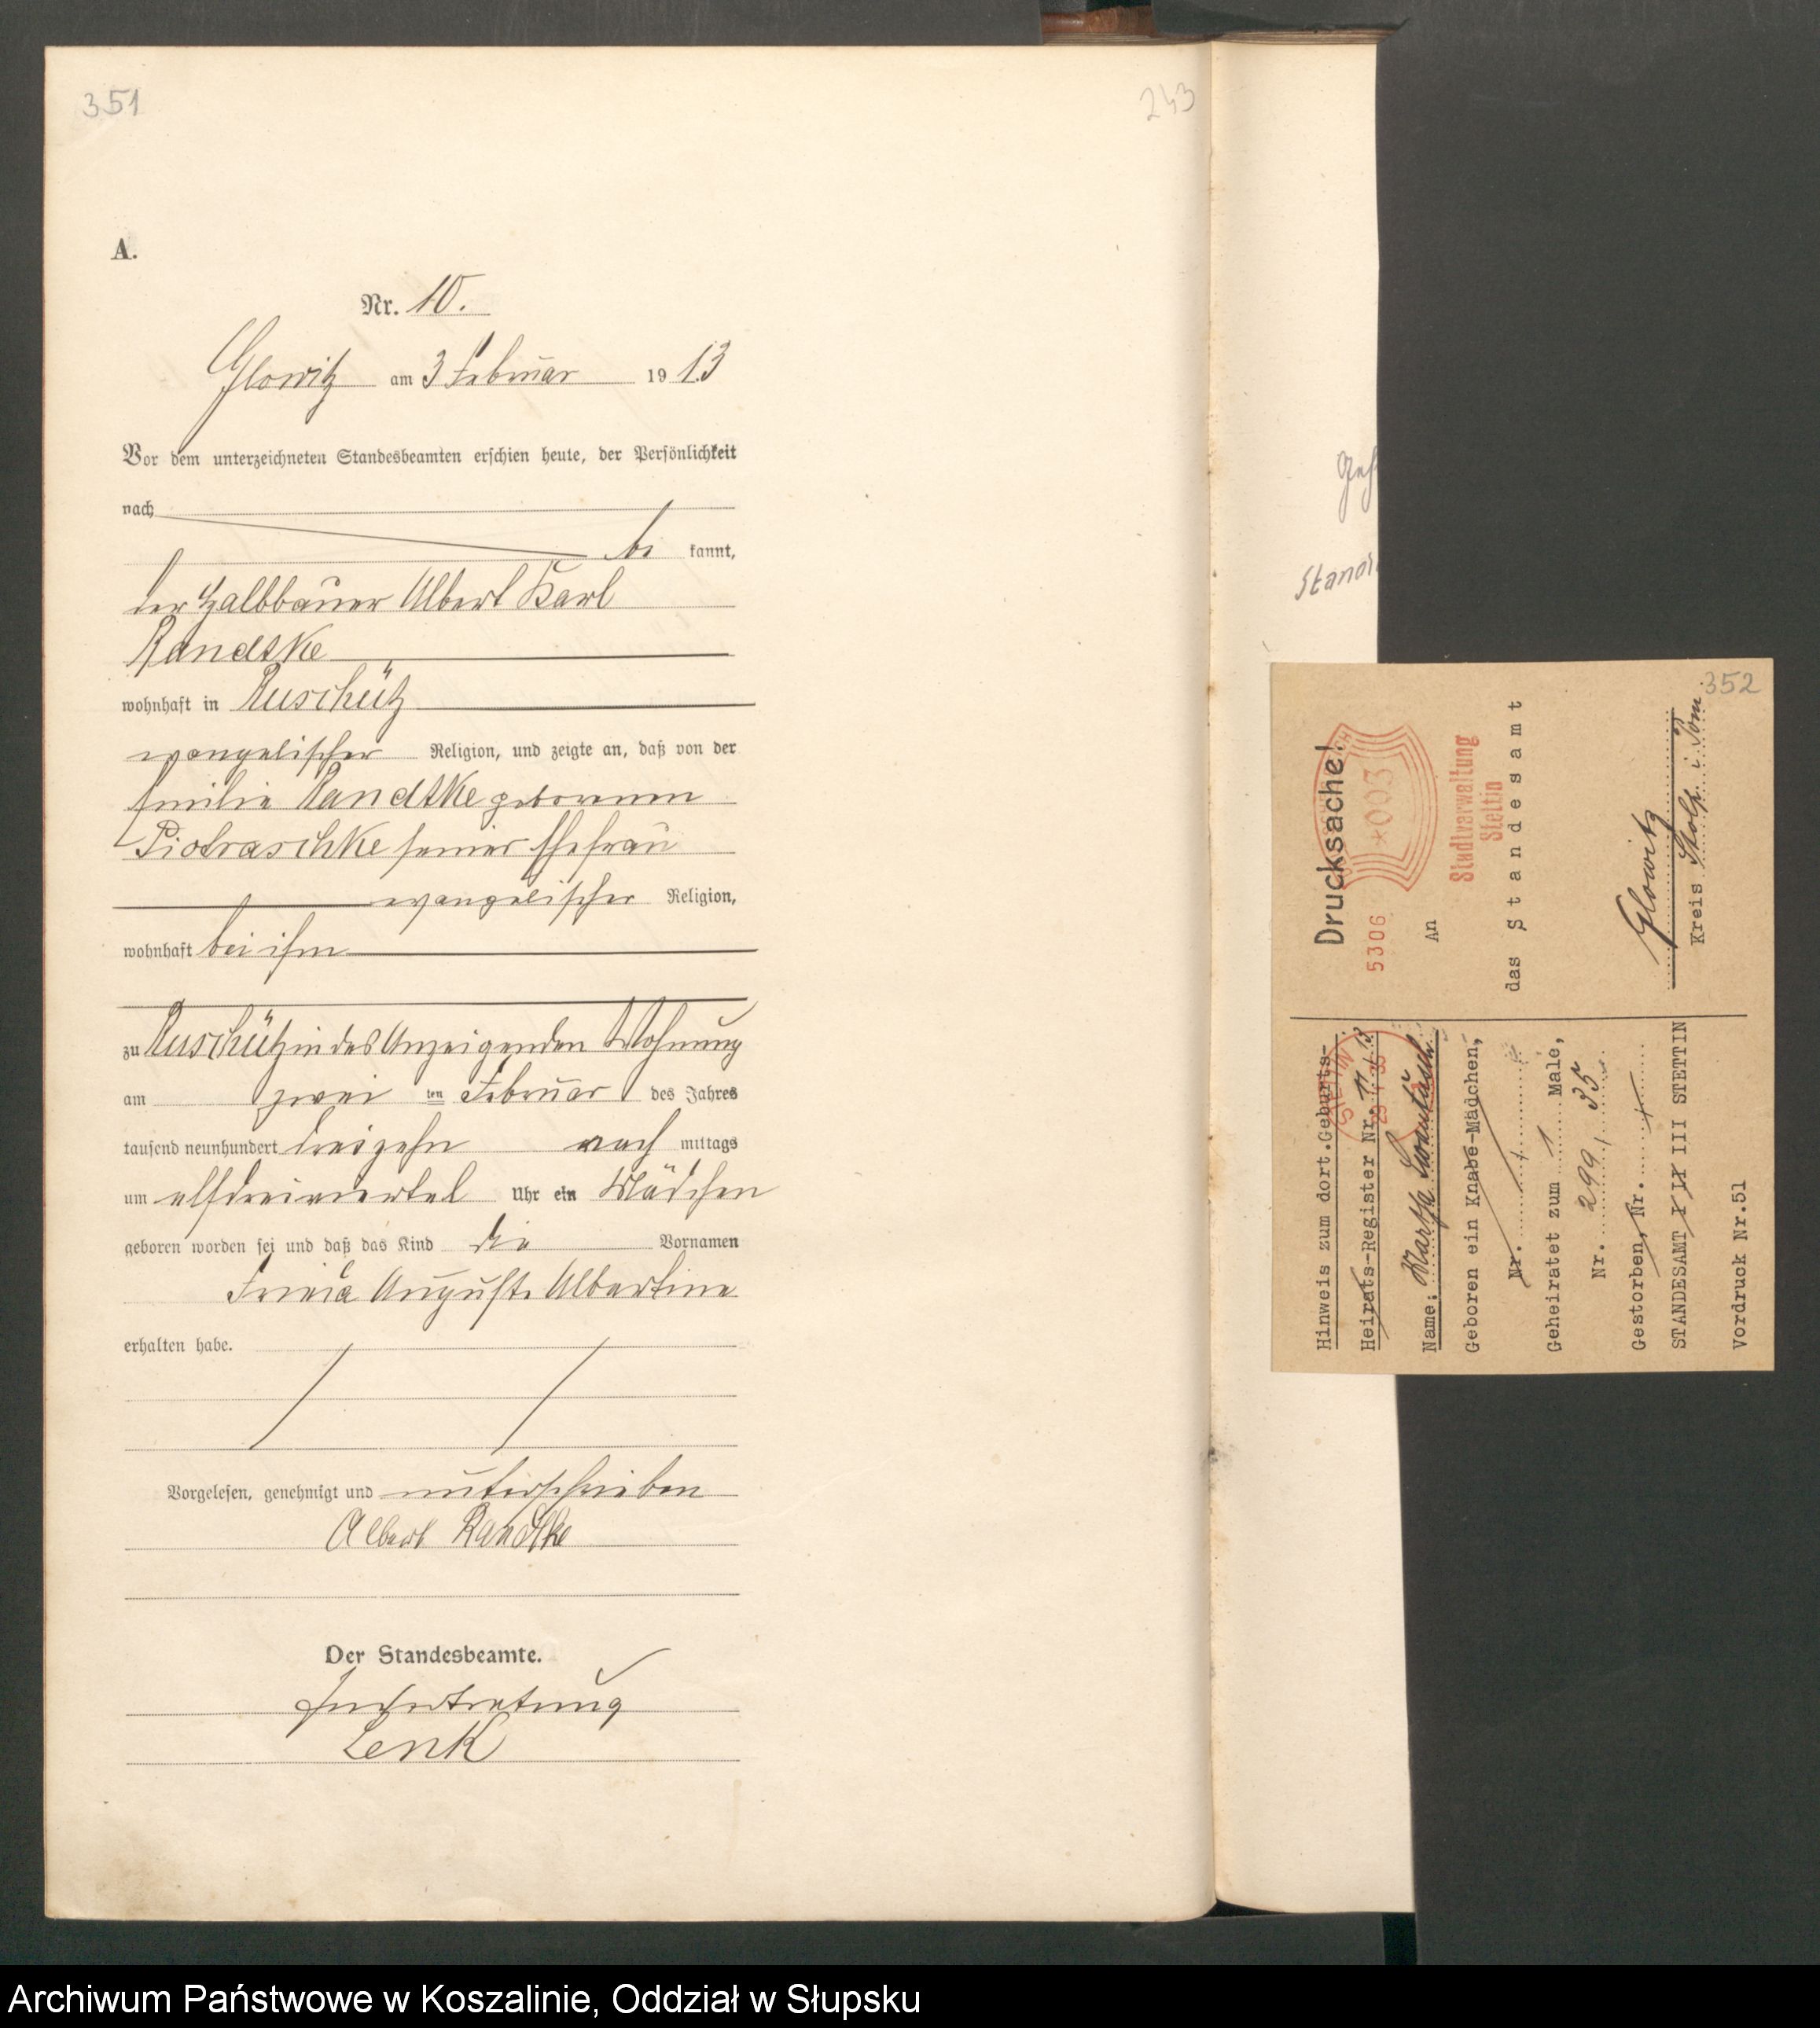 351
243
A.
Nr. 10.
Glowitz am 3 Februar 1913
Vor dem unterzeichneten Standesbeamten erschien heute, der Persönlichkeit
nach
be kannt,
der Halbbauer Albert Karl
Randtke
wohnhaft in Ruschütz
evangelischer Religion, und zeigte an, daß von der
Emilie Randtke geborenen
Piotraschke seiner Ehefrau
evangelischer Religion,
wohnhaft bei ihm
zu Ruschütz in des Anzeigenden Wohnung
am zwei ten Februar des Jahres
tausend neunhundert dreizehn nach mittags
um elfdreiviertel Uhr ein Mädchen
geboren worden sei und daß das Kind die Vornamen
Frieda Auguste Albertine
erhalten habe.
Vorgelesen, genehmigt und unterschrieben
Albert Randtke
Der Standesbeamte.
In Vertretung
Lenk
352
Drucksache!
5306
*003
Stadtverwaltung
Stettin
An
das Standesamt
Glowitz
Kreis Stolp i Pom.
Hinweis zum dort. Geburts-
Heirats-Register Nr. 11/13
Name: Martha
Geboren ein Knabe-Mädchen,
Nr.
Geheiratet zum 1 Male,
Nr. 299/35
Gestorben, Nr.
STANDESAMT I II III STETTIN
Vordruck Nr.51
Archiwum Państwowe w Koszalinie, Oddział w Słupsku